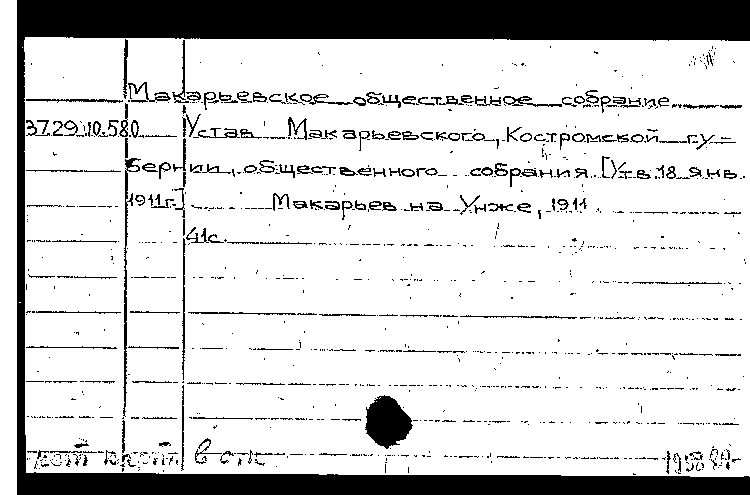 Макарьевское общественное собрание
37.29.10.580 Устав Макарьевского, Костромской гу-
бернии, общественного собрания. [Утв. 18 янв.
1911 г.] Макарьев на Унже, 1911
41 с.
в отк